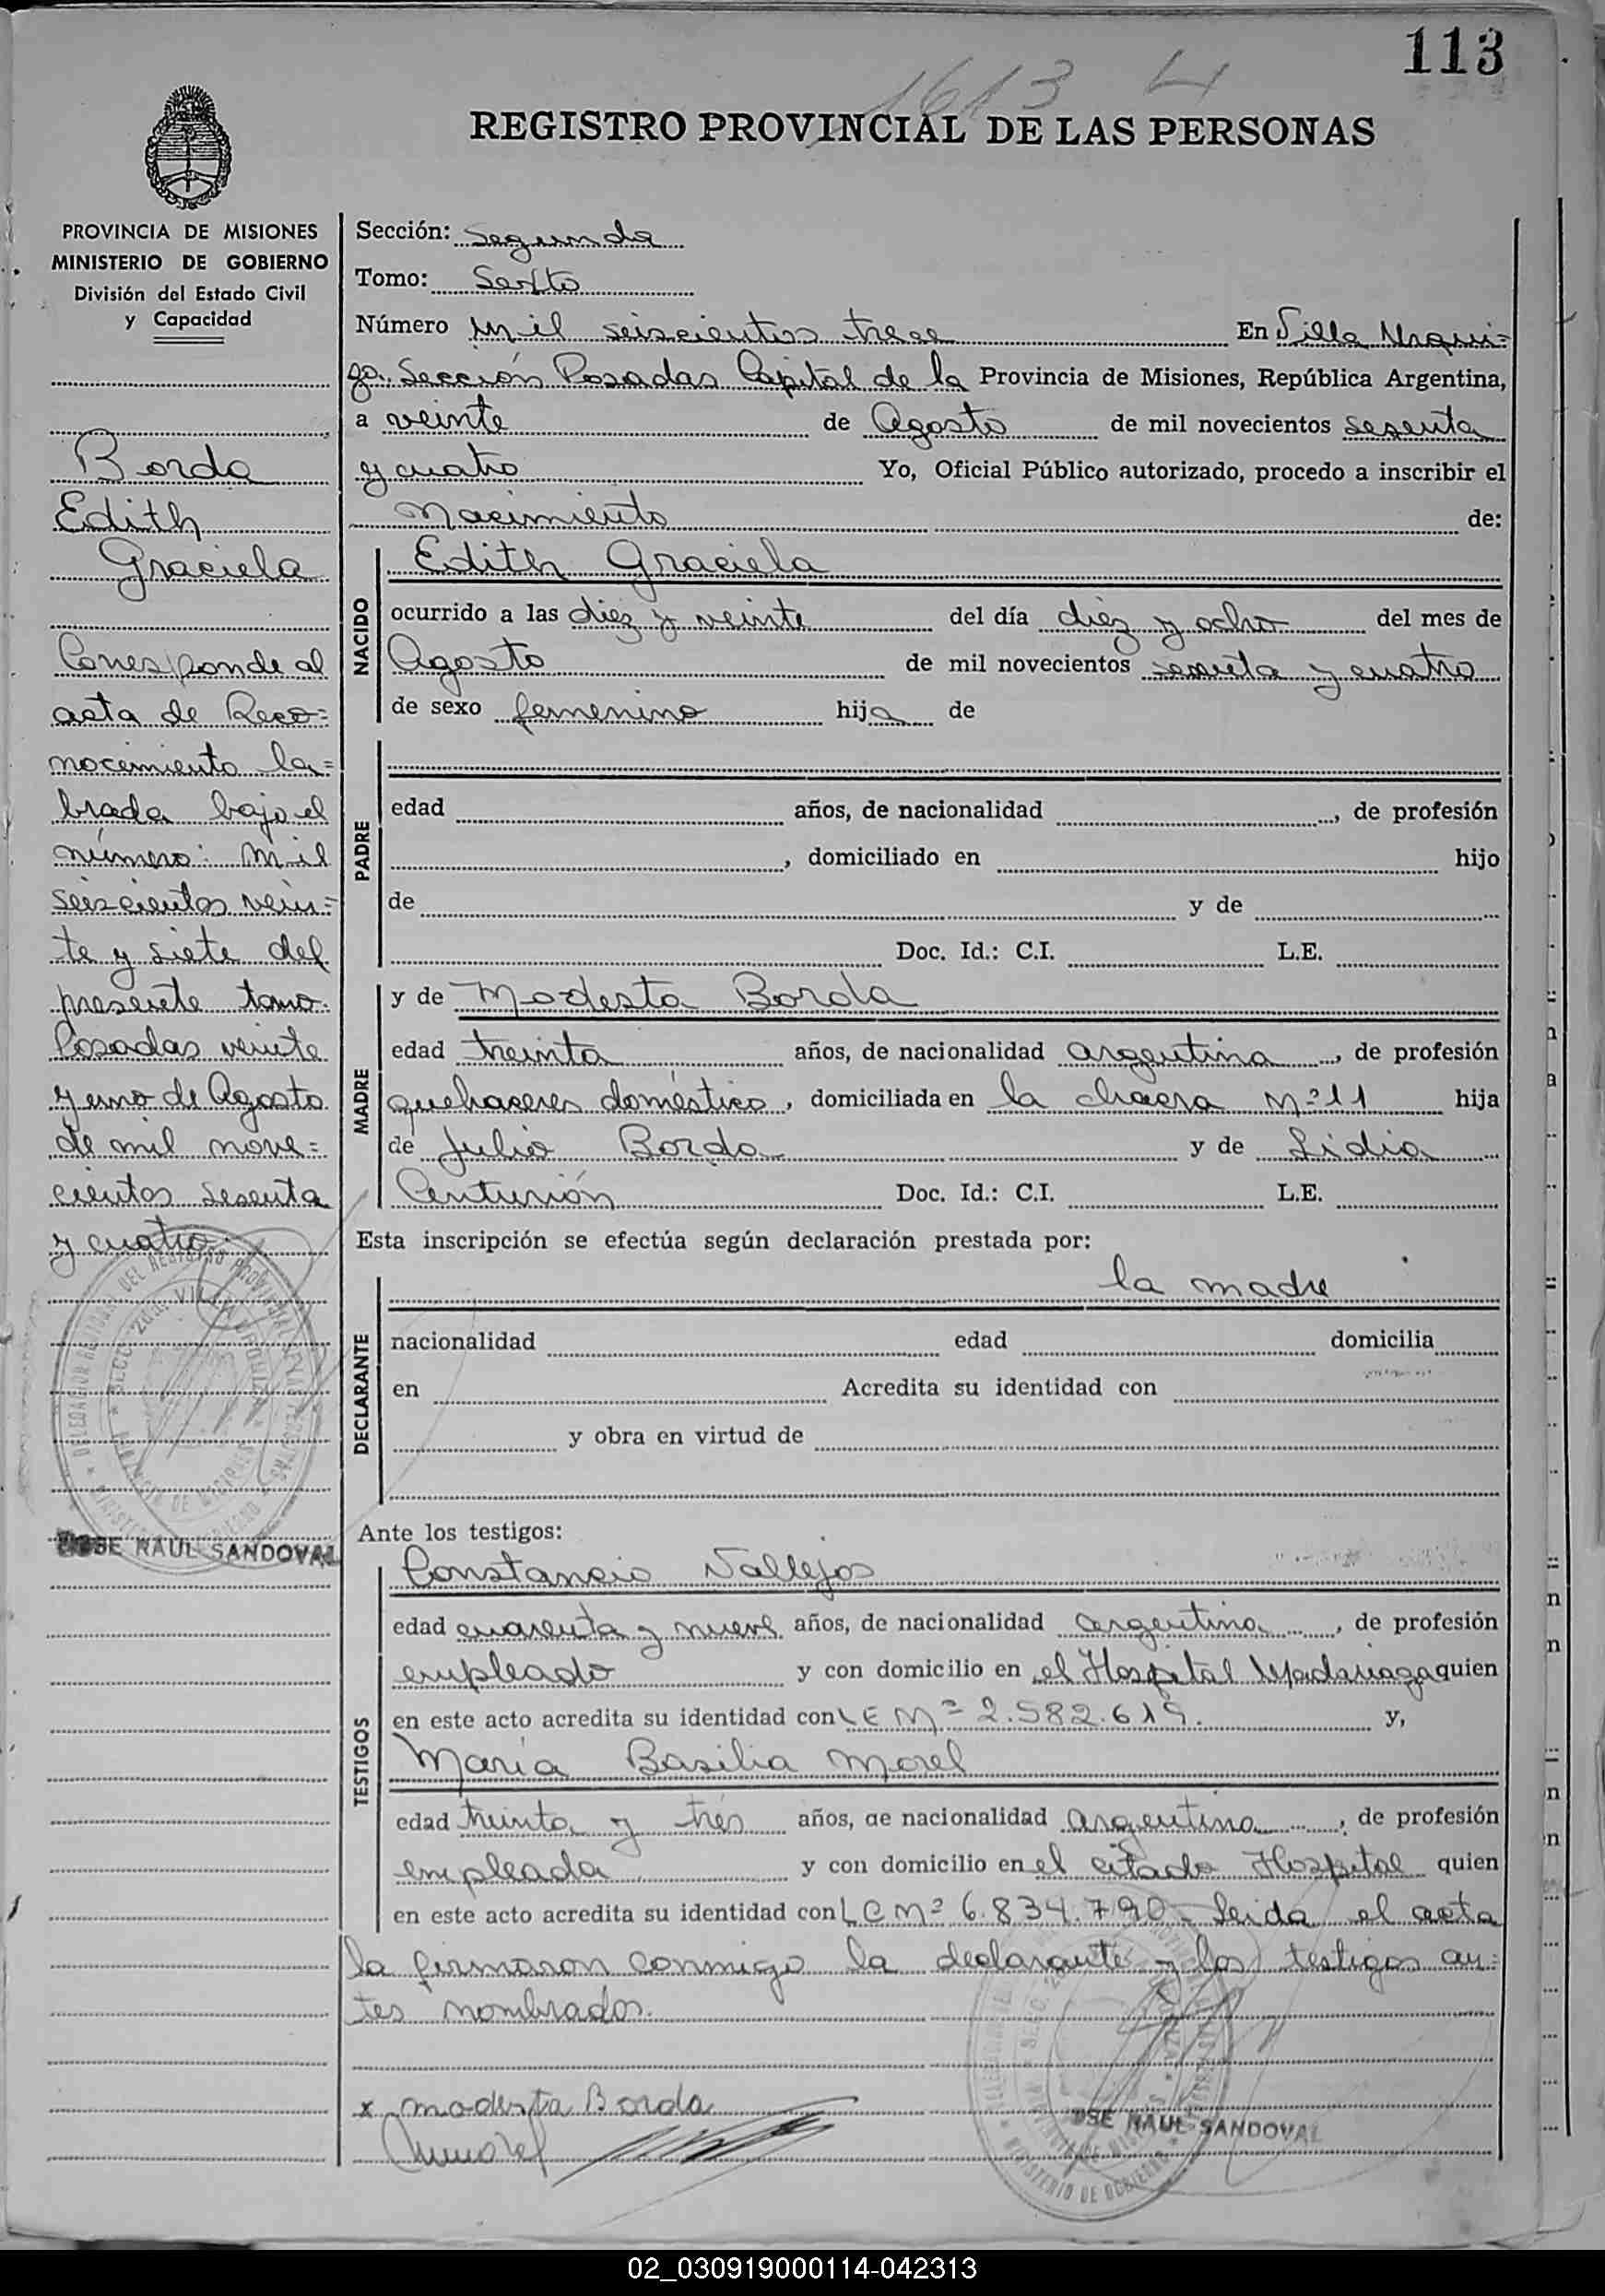 113
1613 4
REGISTRO PROVINCIAL DE LAS PERSONAS
PROVINCIA DE MISIONES
MINISTERIO DE GOBIERNO
División del Estado Civil
y Capacidad
Borda
Edith
Graciela
Corresponde al
acta de Reco=
nocimiento la=
brada bajo el
número: Mil
seiscientos vein=
te y siete del
presente tomo.
Posadas veinte
y uno de Agosto
de mil nove=
cientos sesenta
y cuatro.
JOSE RAUL SANDOVAL
Sección: Segunda
Tomo: Sexto
Número Mil seiscientos trece En Villa Urqui=
za. Sección Posadas Capital de la Provincia de Misiones, República Argentina,
a veinte de Agosto de mil novecientos sesenta
y cuatro Yo, Oficial Público autorizado, procedo a inscribir el
Nacimiento de:
NACIDO
Edith Graciela
ocurrido a las diez y veinte del día diez y ocho del mes de
Agosto de mil novecientos sesenta y cuatro
de sexo femenino hija de
PADRE
edad años, de nacionalidad , de profesión
, domiciliado en hijo
de y de
Doc. Id.: C.I. L.E.
MADRE
y de Modesta Borda
edad treinta años, de nacionalidad argentina , de profesión
quehaceres doméstico , domiciliada en la chacra Nº 11 hija
de Julio Borda y de Lidia
Centurión Doc. Id.: C.I. L.E.
Esta inscripción se efectúa según declaración prestada por:
DECLARANTE
la madre
nacionalidad edad domicilia
en Acredita su identidad con
y obra en virtud de
Ante los testigos:
TESTIGOS
Constancio Vallejos
edad cuarenta y nueve años, de nacionalidad argentina , de profesión
empleado y con domicilio en el Hospital Madariaga quien
en este acto acredita su identidad con LE Nº 2.582.619. y,
María Basilia Morel
edad treinta y tres años, de nacionalidad argentina , de profesión
empleada y con domicilio en el citado Hospital quien
en este acto acredita su identidad con LC Nº 6.834.790 Leida el acta
la firmaron conmigo la declarante y los testigos an=
tes nombrados.
x modesta Borda
JOSE RAUL SANDOVAL
02_030919000114-042313